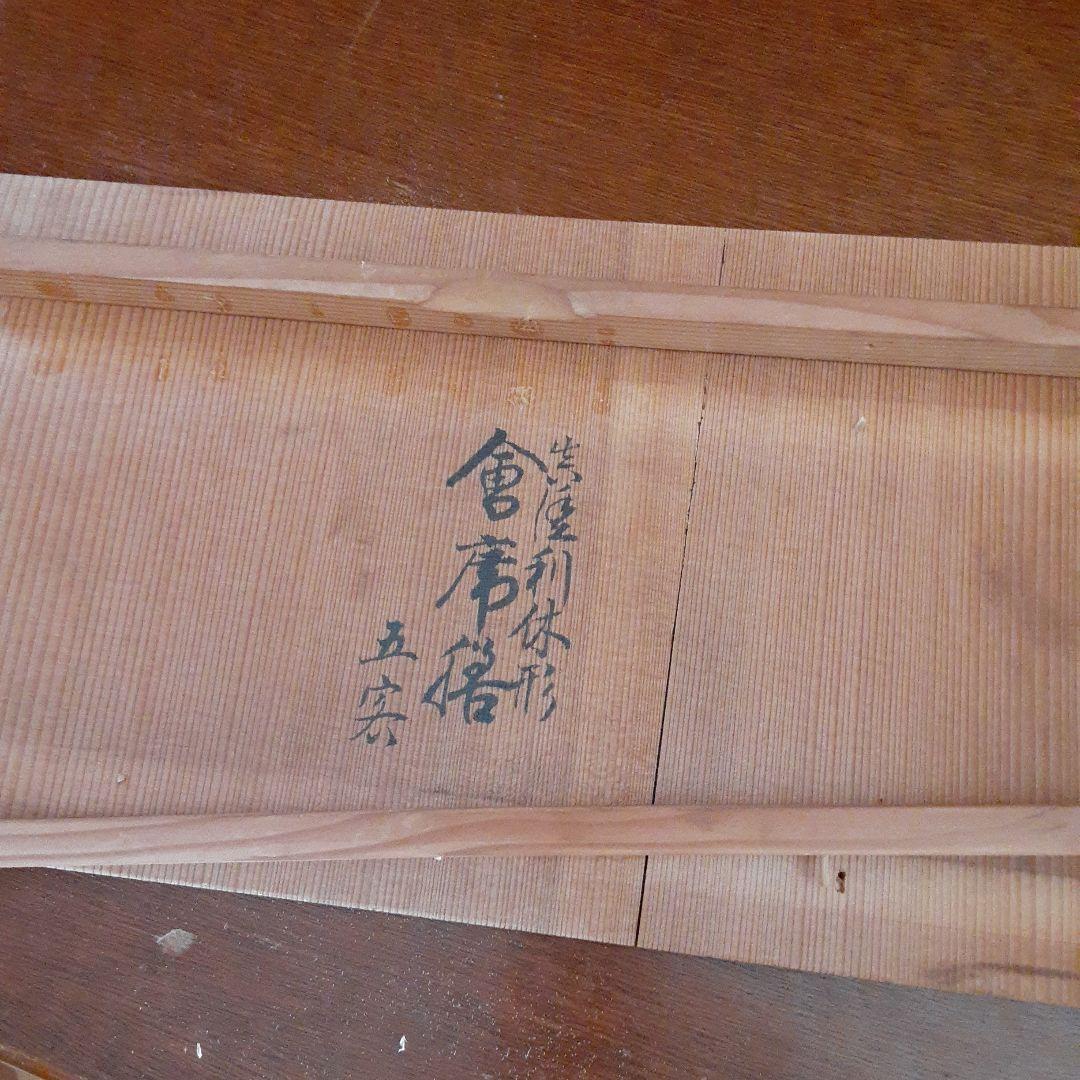 真塗利休形
會席膳
五客